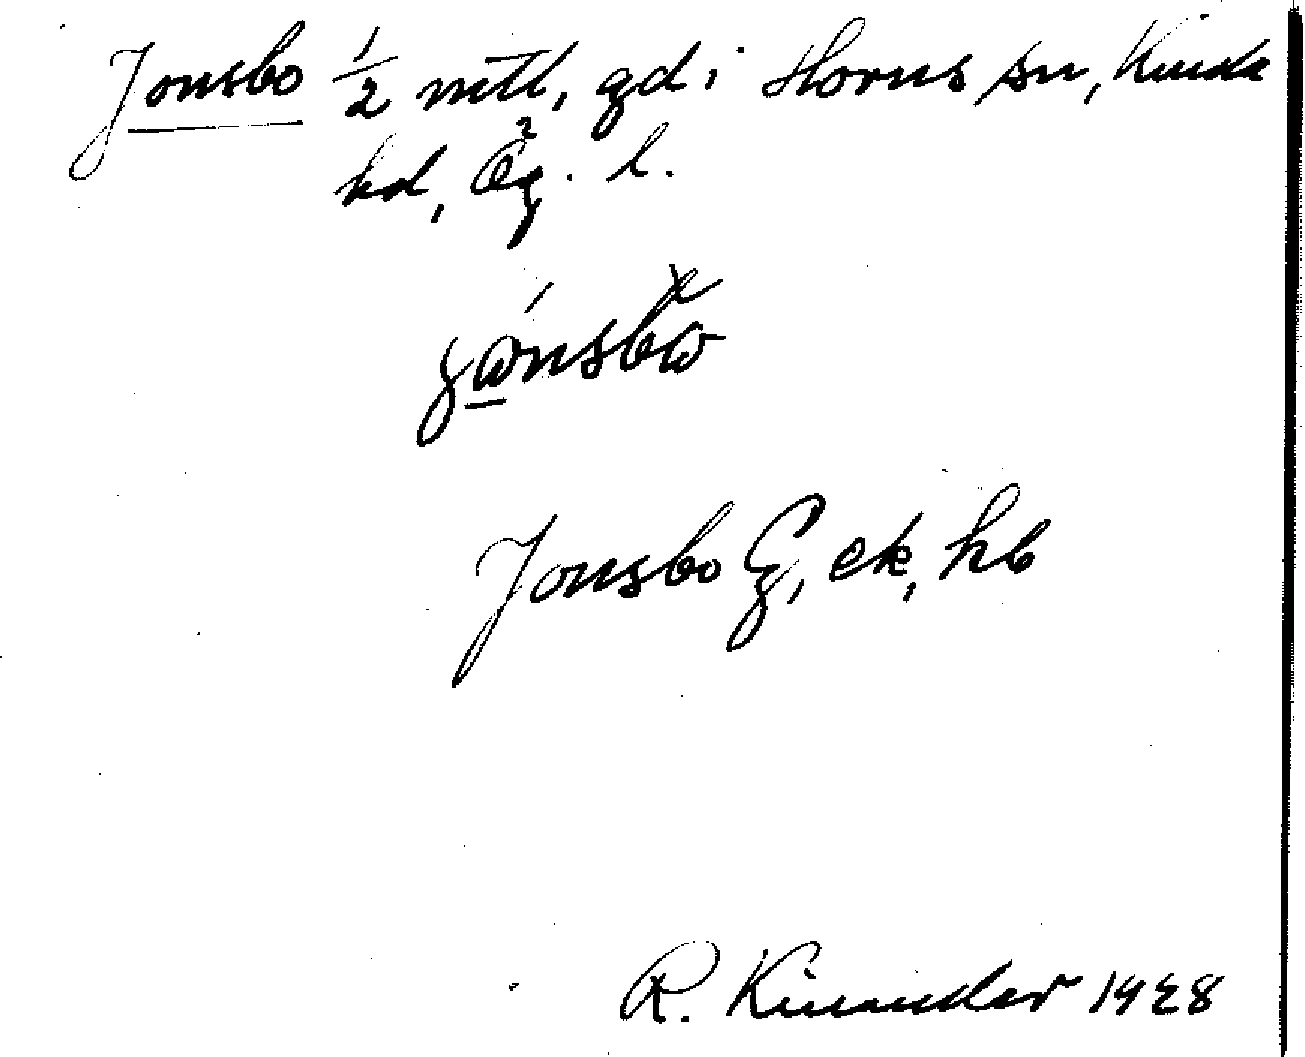 Jonsbo 1/2 mtl, gd i Horns sn, Kinda
hd, Ög. l.
Jonsbo G, ek, hb
R. Kinander 1928